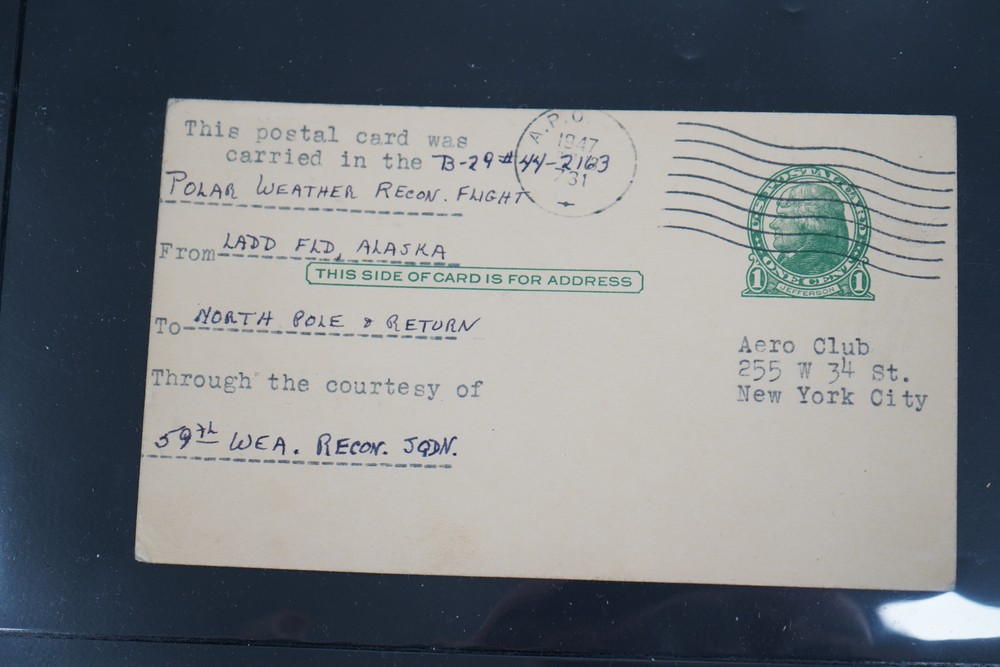 This postal card was
carried in the B-29 #44-2163
POLAR WEATHER RECON. FLIGHT
From LADD FLD, ALASKA
THIS SIDE OF CARD IS FOR ADDRESS
To NORTH POLE & RETURN
Through the courtesy of
59th WEA. RECON. SQDN.
A.P.O.
1947
731
U.S. POSTAL CARD
ONE CENT
1 JEFFERSON 1
Aero Club
255 W 34 St.
New York City